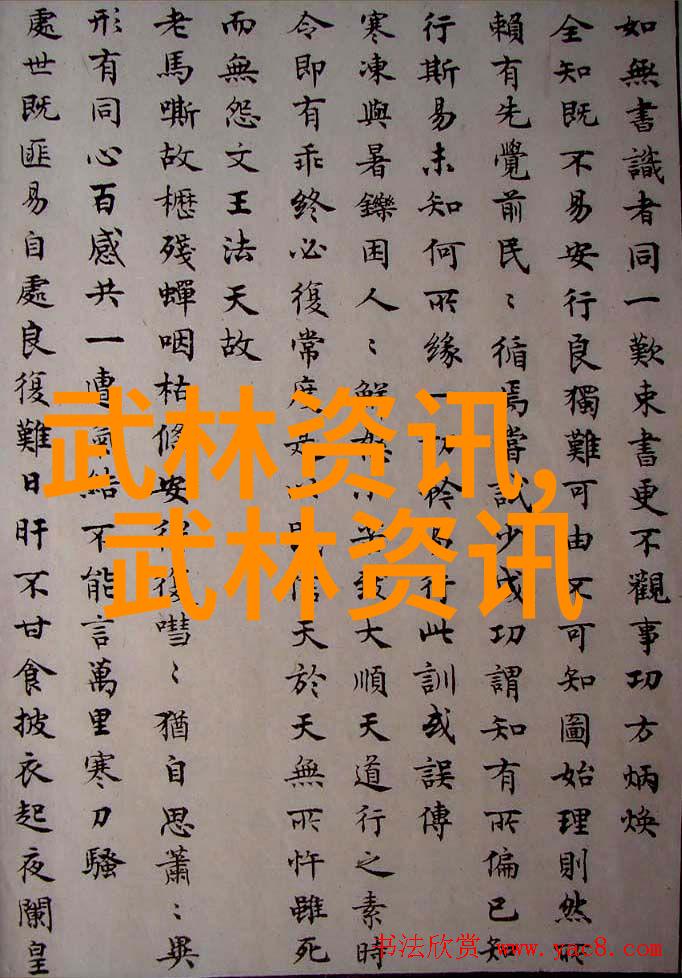 如無書識者同一歎束書更不觀事功方炳煥
全知既不易安行良獨難可由不可知圖始理則然所
賴有先覺前民〻循焉嘗試少成功謂知有所偏已知
行斯易未知何所緣一行此訓或誤傳
寒凍與暑鑠困人〻鮮大順天道行之素時
令即有乖終必復常度天於天無所忤雖死
而無怨文王法天故
老馬嘶故櫪殘蟬咽枯條安復嘒〻猶自思蕭〻異
形有同心百感共一結不能言萬里寒刀騷
處世既匪易自處良復難日旰不甘食披衣起夜闌皇
武林资讯,
武林资讯
书法欣赏 www.yac8.com